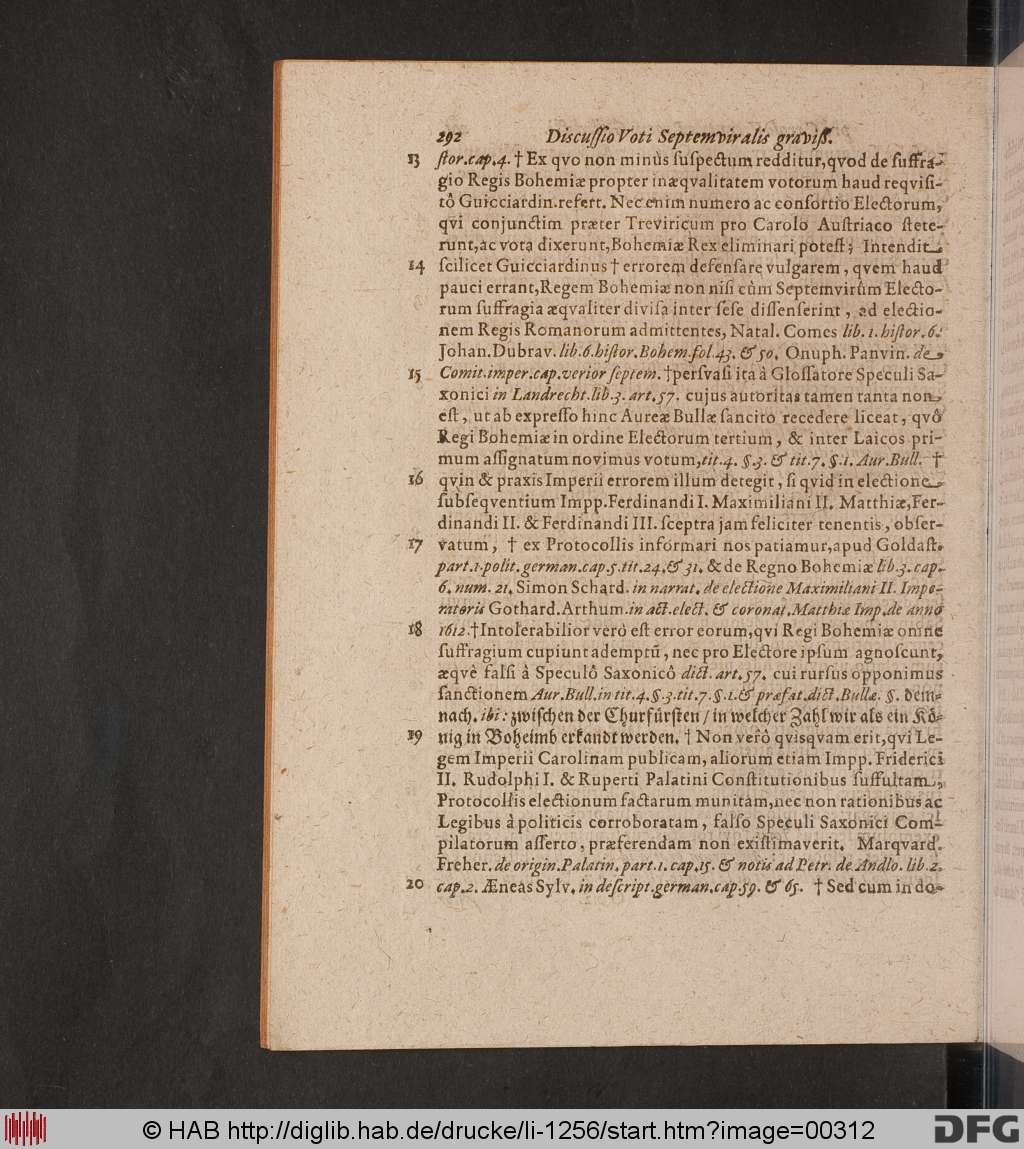 292 Discussio Voti Septemviralis graviß.
13 ſtor.cap.4. † Ex qvo non minùs ſuſpectum redditur,qvod de ſuffra-
gio Regis Bohemiæ propter inæqvalitatem votorum haud reqviſi-
tô Guicciardin.refert. Nec enim numero ac conſortio Electorum,
qvi conjunctim præter Treviricum pro Carolo Auſtriaco ſtete-
runt,ac vota dixerunt,Bohemiæ Rex eliminari poteſt; Intendit
14 ſcilicet Guicciardinus † errorem defenſare vulgarem, qvem haud
pauci errant,Regem Bohemiæ non niſi cùm Septemvirûm Electo-
rum ſuffragia æqvaliter diviſa inter ſeſe diſſenſerint, ad electio-
nem Regis Romanorum admittentes, Natal. Comes lib. 1. hiſtor. 6.
Johan.Dubrav. lib.6.hiſtor.Bohem.fol.43. & 50. Onuph. Panvin. de
15 Comit.imper.cap.verior ſeptem. †perſvaſi ita à Gloſſatore Speculi Sa-
xonici in Landrecht.lib.3. art.57. cujus autoritas tamen tanta non
eſt, ut ab expreſſo hinc Aureæ Bullæ ſancito recedere liceat, qvô
Regi Bohemiæ in ordine Electorum tertium, & inter Laicos pri-
mum aſſignatum novimus votum,tit.4. §.3. & tit.7. §.1. Aur.Bull. †
16 qvin & praxis Imperii errorem illum detegit, ſi qvid in electione
ſubſeqventium Impp.Ferdinandi I. Maximiliani II. Matthiæ,Fer-
dinandi II. & Ferdinandi III. ſceptra jam feliciter tenentis, obſer-
17 vatum, † ex Protocollis informari nos patiamur,apud Goldaſt.
part.1.polit.german.cap.5.tit.24.& 31. & de Regno Bohemiæ lib.3. cap.
6. num. 21. Simon Schard. in narrat. de electione Maximiliani II. Impe-
ratoris Gothard.Arthum.in act.elect. & coronat.Matthiæ Imp.de anno
18 1612.†Intolerabilior verò eſt error eorum,qvi Regi Bohemiæ omne
ſuffragium cupiunt ademptũ, nec pro Electore ipſum agnoſcunt,
æqvè falſi à Speculô Saxonicô dict. art.57. cui rurſus opponimus
ſanctionem Aur.Bull.in tit.4.§.3.tit.7.§.1.& præfat.dict.Bullæ. §. dem-
nach. ibi: zwiſchen der Churfürſten / in welcher Zahl wir als ein Kö-
19 nig in Boheimb erkandt werden. † Non verô qvisqvam erit,qvi Le-
gem Imperii Carolinam publicam, aliorum etiam Impp. Friderici
II. Rudolphi I. & Ruperti Palatini Conſtitutionibus ſuffultam,
Protocollis electionum factarum munitam,nec non rationibus ac
Legibus à politicis corroboratam, falſo Speculi Saxonici Com-
pilatorum aſſerto, præferendam non exiſtimaverit. Marqvard.
Freher. de origin.Palatin.part.1. cap.15. & notis ad Petr. de Andlo. lib.2.
20 cap.2. Æneas Sylv. in deſcript.german.cap.59. & 65. † Sed cum in do-
© HAB http://diglib.hab.de/drucke/li-1256/start.htm?image=00312
DFG